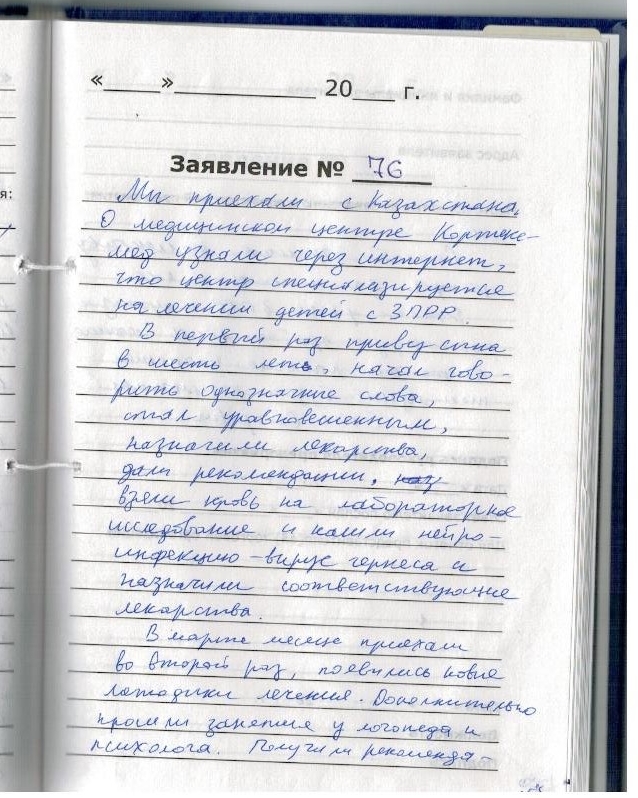 «_____»____________ 20___ г.
Заявление № 76
я:
Мы приехали с Казахстана.
О медицинском центре Кортекс-
мед узнали через интернет,
что центр специализируется
на лечении детей с ЗПРР.
В первый раз привезла сына
в шесть лет, начал гово-
рить однозначные слова,
стал уравновешенным,
назначили лекарства,
дали рекомендации.
взяли кровь на лабораторное
исследование и нашли нейро-
инфекцию - вирус герпеса и
назначили соответствующие
лекарства.
В марте месяце приехали
во второй раз, появились новые
методики лечения. Дополнительно
прошли занятия у логопеда и
психолога. Получили рекоменда-